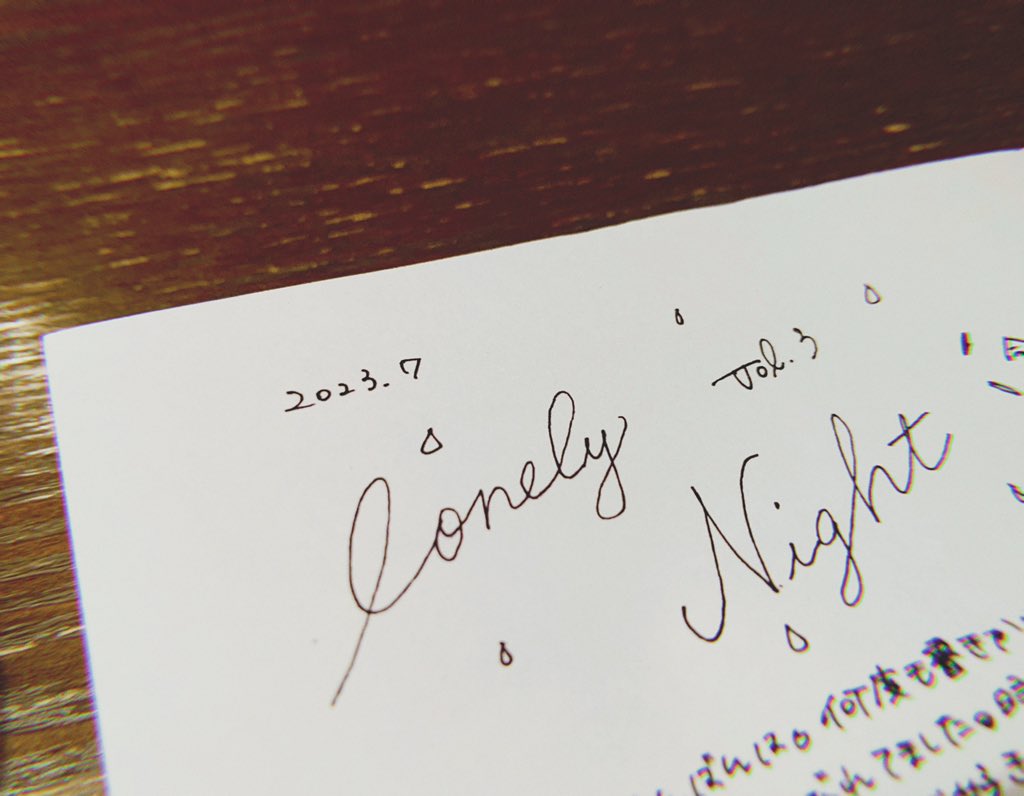 2023.7
Vol.3
lonely Night
ばんは。何度も書き
れてました。時